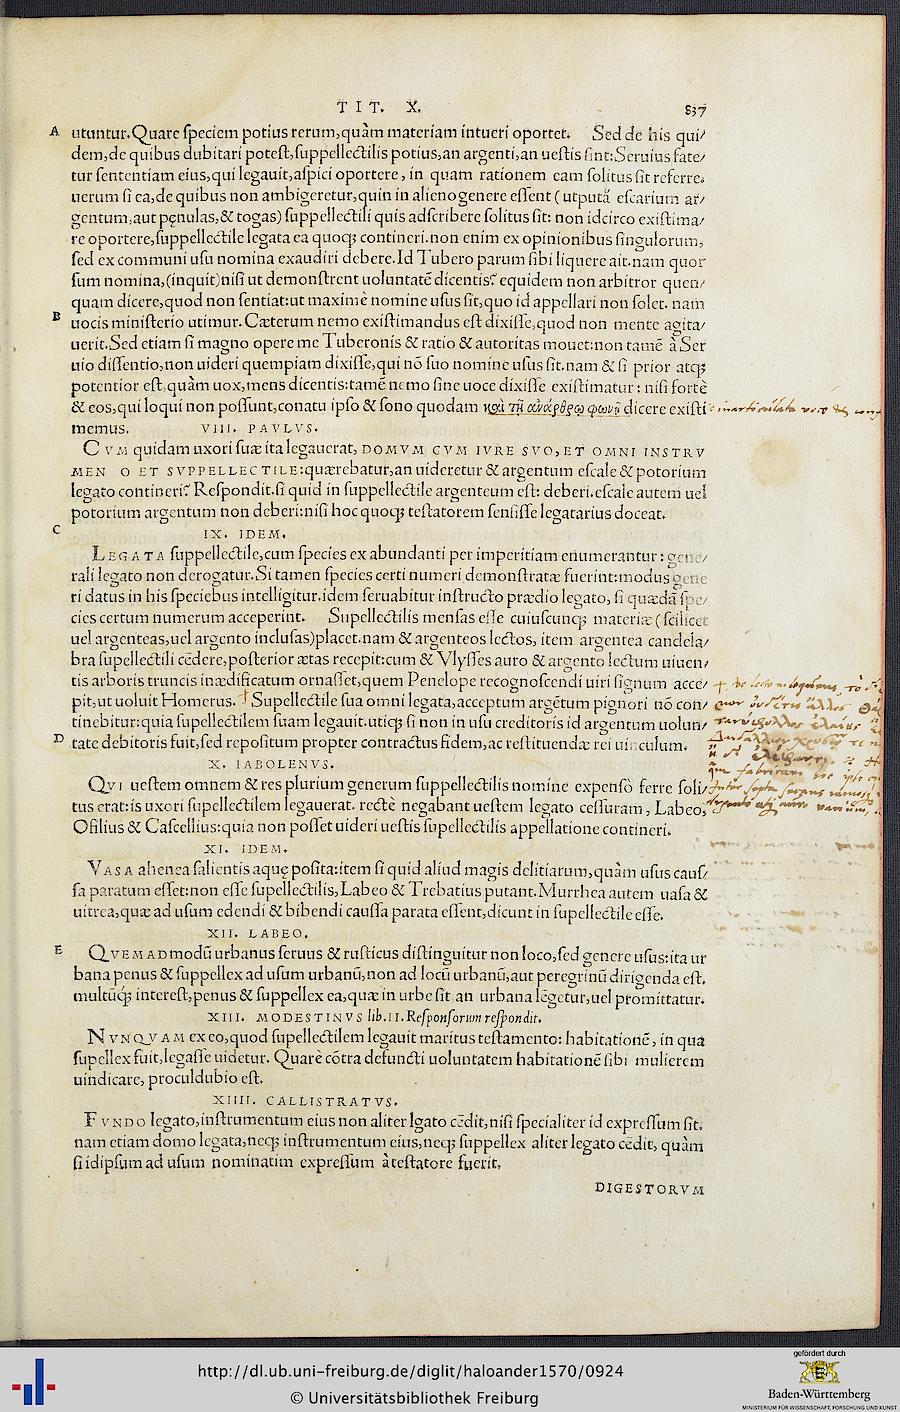 TIT. X. 837
A utuntur.Quare ſpeciem potius rerum,quàm materiam intueri oportet. Sed de his qui/
dem,de quibus dubitari poteſt,ſuppellectilis potius,an argenti,an ueſtis ſint:Seruius fate/
tur ſententiam eius,qui legauit,aſpici oportere, in quam rationem eam ſolitus ſit referre.
uerum ſi ea,de quibus non ambigeretur,quin in alieno genere eſſent (utputà eſcarium ar/
gentum,aut pęnulas,& togas) ſuppellectili quis adſcribere ſolitus ſit: non idcirco exiſtima/
re oportere,ſuppellectile legata ea quoq; contineri.non enim ex opinionibus ſingulorum,
ſed ex communi uſu nomina exaudiri debere.Id Tubero parum ſibi liquere ait.nam quor
ſum nomina,(inquit)niſi ut demonſtrent uoluntatē dicentis? equidem non arbitror quen/
quam dicere,quod non ſentiat:ut maximè nomine uſus ſit,quo id appellari non ſolet. nam
B uocis miniſterio utimur. Cæterum nemo exiſtimandus eſt dixiſſe,quod non mente agita/
uerit.Sed etiam ſi magno opere me Tuberonis & ratio & autoritas mouet:non tamē à Ser
uio diſſentio,non uideri quempiam dixiſſe,qui nō ſuo nomine uſus ſit.nam & ſi prior atq;
potentior eſt,quàm uox,mens dicentis:tamē nemo ſine uoce dixiſſe exiſtimatur: niſi fortè
& eos,qui loqui non poſſunt,conatu ipſo & ſono quodam καὶ τῇ ἀνάρθρῳ φωνῇ dicere exiſti inarticulata voce &
memus. VIII. PAVLVS.
CVM quidam uxori ſuæ ita legauerat, DOMVM CVM IVRE SVO, ET OMNI INSTRV
MEN O ET SVPPELLECTILE:quærebatur,an uideretur & argentum eſcale & potorium
legato contineri? Reſpondit.ſi quid in ſuppellectile argenteum eſt: deberi.eſcale autem uel
potorium argentum non deberi:niſi hoc quoq; teſtatorem ſenſiſſe legatarius doceat.
C IX. IDEM.
LEGATA ſuppellectile,cum ſpecies ex abundanti per imperitiam enumerantur: gene/
rali legato non derogatur.Si tamen ſpecies certi numeri demonſtratæ fuerint:modus gene
ri datus in his ſpeciebus intelligitur.idem ſeruabitur inſtructo prædio legato, ſi quædā ſpe/
cies certum numerum acceperint. Supellectilis menſas eſſe cuiuſcunq; materiæ (ſcilicet
uel argenteas,uel argento incluſas)placet.nam & argenteos lectos, item argentea candela/
bra ſupellectili cēdere,poſterior ætas recepit:cum & Vlyſſes auro & argento lectum uiuen/
tis arboris truncis inædificatum ornaſſet,quem Penelope recognoſcendi uiri ſignum acce/
pit,ut uoluit Homerus. † Supellectile ſua omni legata,acceptum argētum pignori nō con/
tinebitur:quia ſupellectilem ſuam legauit.utiq; ſi non in uſu creditoris id argentum uolun/
D tate debitoris fuit,ſed repoſitum propter contractus fidem,ac reſtituendæ rei uinculum.
X. IABOLENVS.
QVI ueſtem omnem & res plurium generum ſuppellectilis nomine expenſo ferre ſoli/
tus erat:is uxori ſupellectilem legauerat. rectè negabant ueſtem legato ceſſuram, Labeo,
Ofilius & Caſcellius:quia non poſſet uideri ueſtis ſupellectilis appellatione contineri.
XI. IDEM.
VASA ahenea ſalientis aquę poſita:item ſi quid aliud magis delitiarum,quàm uſus cauſ/
ſa paratum eſſet:non eſſe ſupellectilis,Labeo & Trebatius putant.Murrhea autem uaſa &
uitrea,quæ ad uſum edendi & bibendi cauſſa parata eſſent,dicunt in ſupellectile eſſe.
XII. LABEO.
E QVEMADmodū urbanus ſeruus & ruſticus diſtinguitur non loco,ſed genere uſus:ita ur
bana penus & ſuppellex ad uſum urbanū,non ad locū urbanū,aut peregrinū dirigenda eſt.
multūq́; intereſt,penus & ſuppellex ea,quæ in urbe ſit an urbana lēgetur,uel promittatur.
XIII. MODESTINVS lib.II.Reſponſorum reſpondit.
NVNQVAM ex eo,quod ſupellectilem legauit maritus teſtamento: habitationē, in qua
ſupellex fuit,legaſſe uidetur. Quarè cōtra defuncti uoluntatem habitationē ſibi mulierem
uindicare, proculdubio eſt.
XIIII. CALLISTRATVS.
FVNDO legato,inſtrumentum eius non aliter lgato cēdit,niſi ſpecialiter id expreſſum ſit.
nam etiam domo legata,neq; inſtrumentum eius,neq; ſuppellex aliter legato cēdit, quàm
ſi idipſum ad uſum nominatim expreſſum à teſtatore fuerit.
DIGESTORVM
http://dl.ub.uni-freiburg.de/diglit/haloander1570/0924
© Universitätsbibliothek Freiburg
gefördert durch
Baden-Württemberg
MINISTERIUM FÜR WISSENSCHAFT, FORSCHUNG UND KUNST